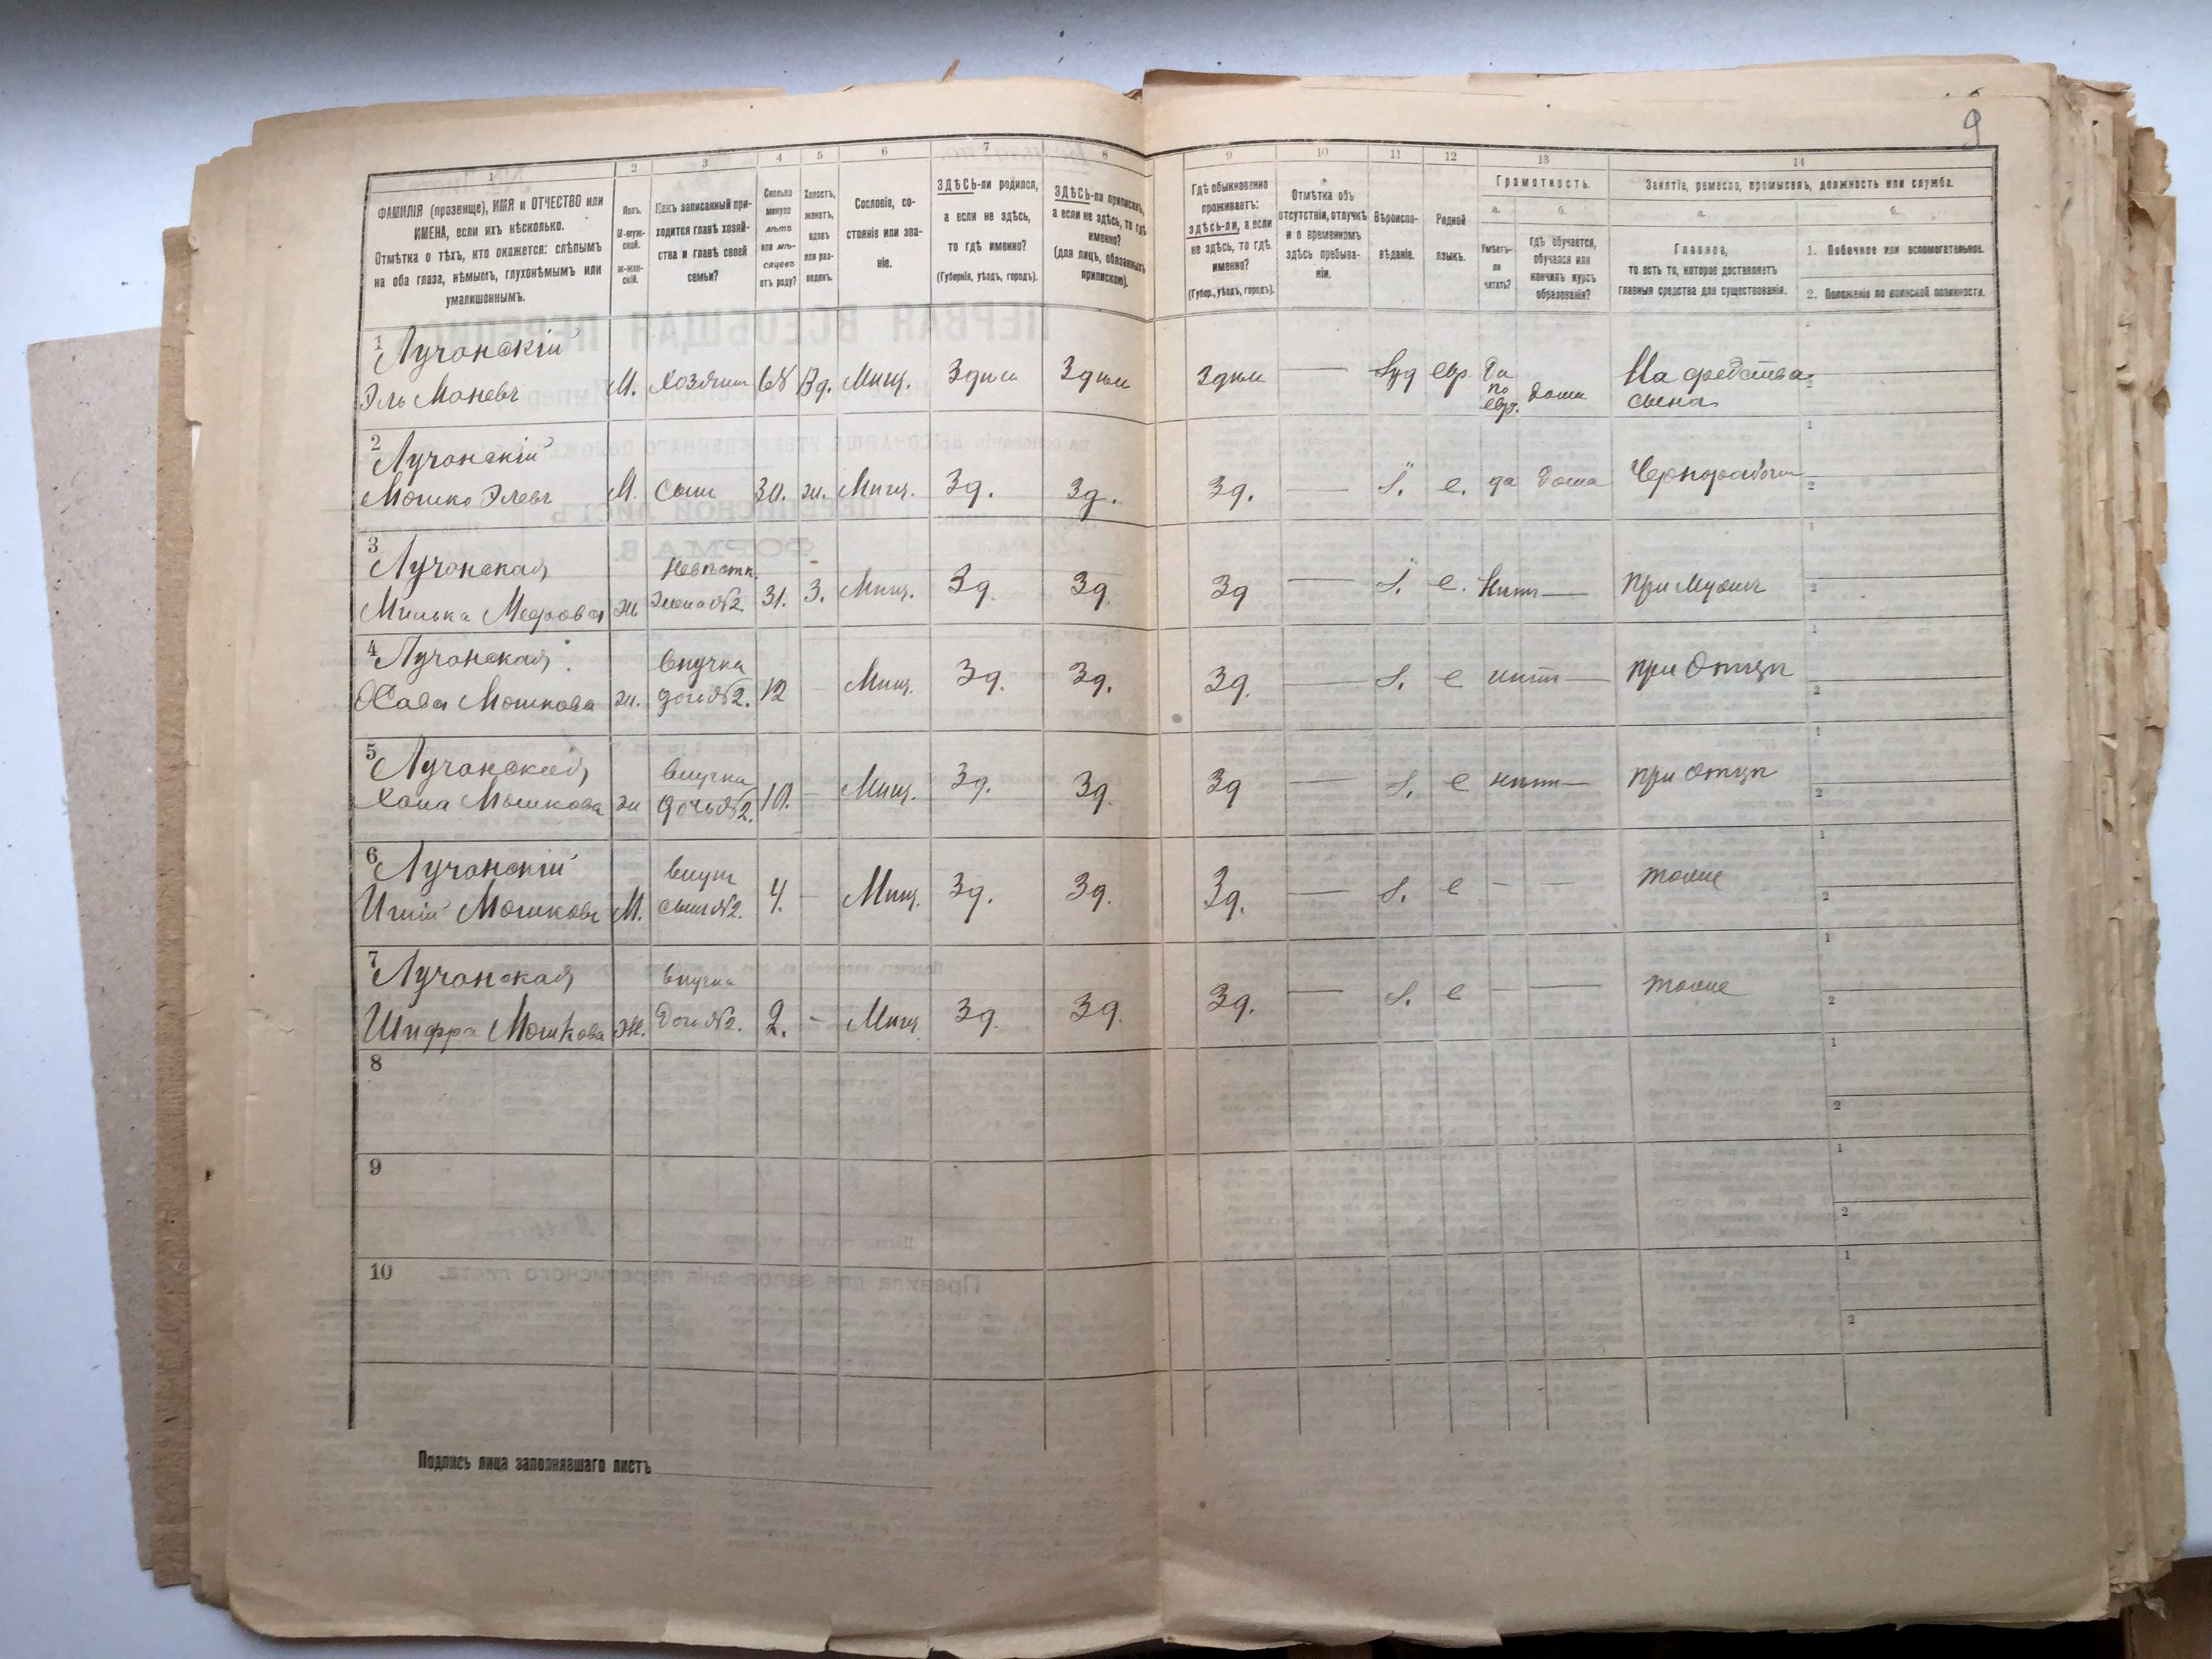 9
1 2 3 4 5 6 7 8 9 10 11 12 13 14
ФАМИЛІЯ (прозвище), ИМЯ и ОТЧЕСТВО или
ИМЕНА, если ихъ нѣсколько.
Отмѣтка о тѣхъ, кто окажется: слѣпымъ
на оба глаза, нѣмымъ, глухонѣмымъ или
умалишеннымъ.
Полъ.
М-муж-
ской.
Ж-жен-
скій.
Какъ записанный при-
ходится главѣ хозяй-
ства и главѣ своей
семьи?
Сколько
минуло
лѣтъ
или мѣ-
сяцевъ
отъ роду?
Холостъ,
женатъ,
вдовъ
или раз-
веденъ.
Сословіе, со-
стояніе или зва-
ніе.
ЗДѢСЬ-ли родился,
а если не здѣсь,
то гдѣ именно?
(Губернія, уѣздъ, городъ).
ЗДѢСЬ-ли приписанъ,
а если не здѣсь, то гдѣ
именно?
(для лицъ, обязанныхъ
припискою).
Гдѣ обыкновенно
проживаетъ:
здѣсь-ли, а если
не здѣсь, то гдѣ
именно?
(Губер., уѣздъ, городъ).
Отмѣтка объ
отсутствіи, отлучкѣ
и о временномъ
здѣсь пребыва-
ніи.
Вѣроиспо-
вѣданіе.
Родной
языкъ.
Грамотность.
а.
Умѣетъ-
ли
читать?
б.
гдѣ обучается,
обучался или
кончилъ курсъ
образованія?
Занятіе, ремесло, промыселъ, должность или служба.
а.
Главное,
то есть то, которое доставляетъ
главныя средства для существованія.
б.
1. Побочное или вспомогательное.
2. Положеніе по воинской повинности.
1 Лучанскій
Эль Маневъ М. Хозяинъ 68 Вд. Мѣщ. Здѣсь Здѣсь Здѣсь — Іуд евр да по евр. дома На средства сына
2 Лучанскій
Мошко Элевъ М. сынъ 30. ж. Мѣщ. Зд. Зд. Зд. — І. е. да дома Чернорабочій
3 Лучанская Невѣстк.
Минька Меерова ж жена №2 31. З. Мѣщ. Зд. Зд. Зд — І. е. Нѣтъ — при Мужѣ
4 Лучанская внучка
Хава Мошкова ж. дочь №2. 12 – Мѣщ. Зд. Зд. Зд. — І. е нѣтъ — при Отцѣ
5 Лучанская внучка
Хана Мошкова ж дочь №2. 10. – Мѣщ. Зд. Зд. Зд — І. е нѣтъ — при Отцѣ
6 Лучанскій внукъ
Мошковъ М. сынъ №2. 4. – Мѣщ. Зд. Зд. Зд. — І. е – — тоже
7 Лучанская внучка
Шифра Мошкова Ж. дочь №2. 2. – Мѣщ. Зд. Зд. Зд. — І. е – — тоже
8
9
10
Подпись лица заполнявшаго листъ